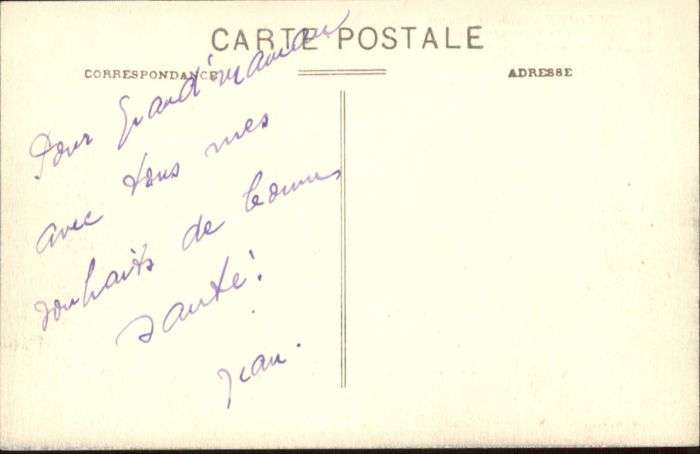 CARTE POSTALE
CORRESPONDANCE
ADRESSE
Pour Grand'maman
avec tous mes
souhaits de bonne
santé!
Jean.